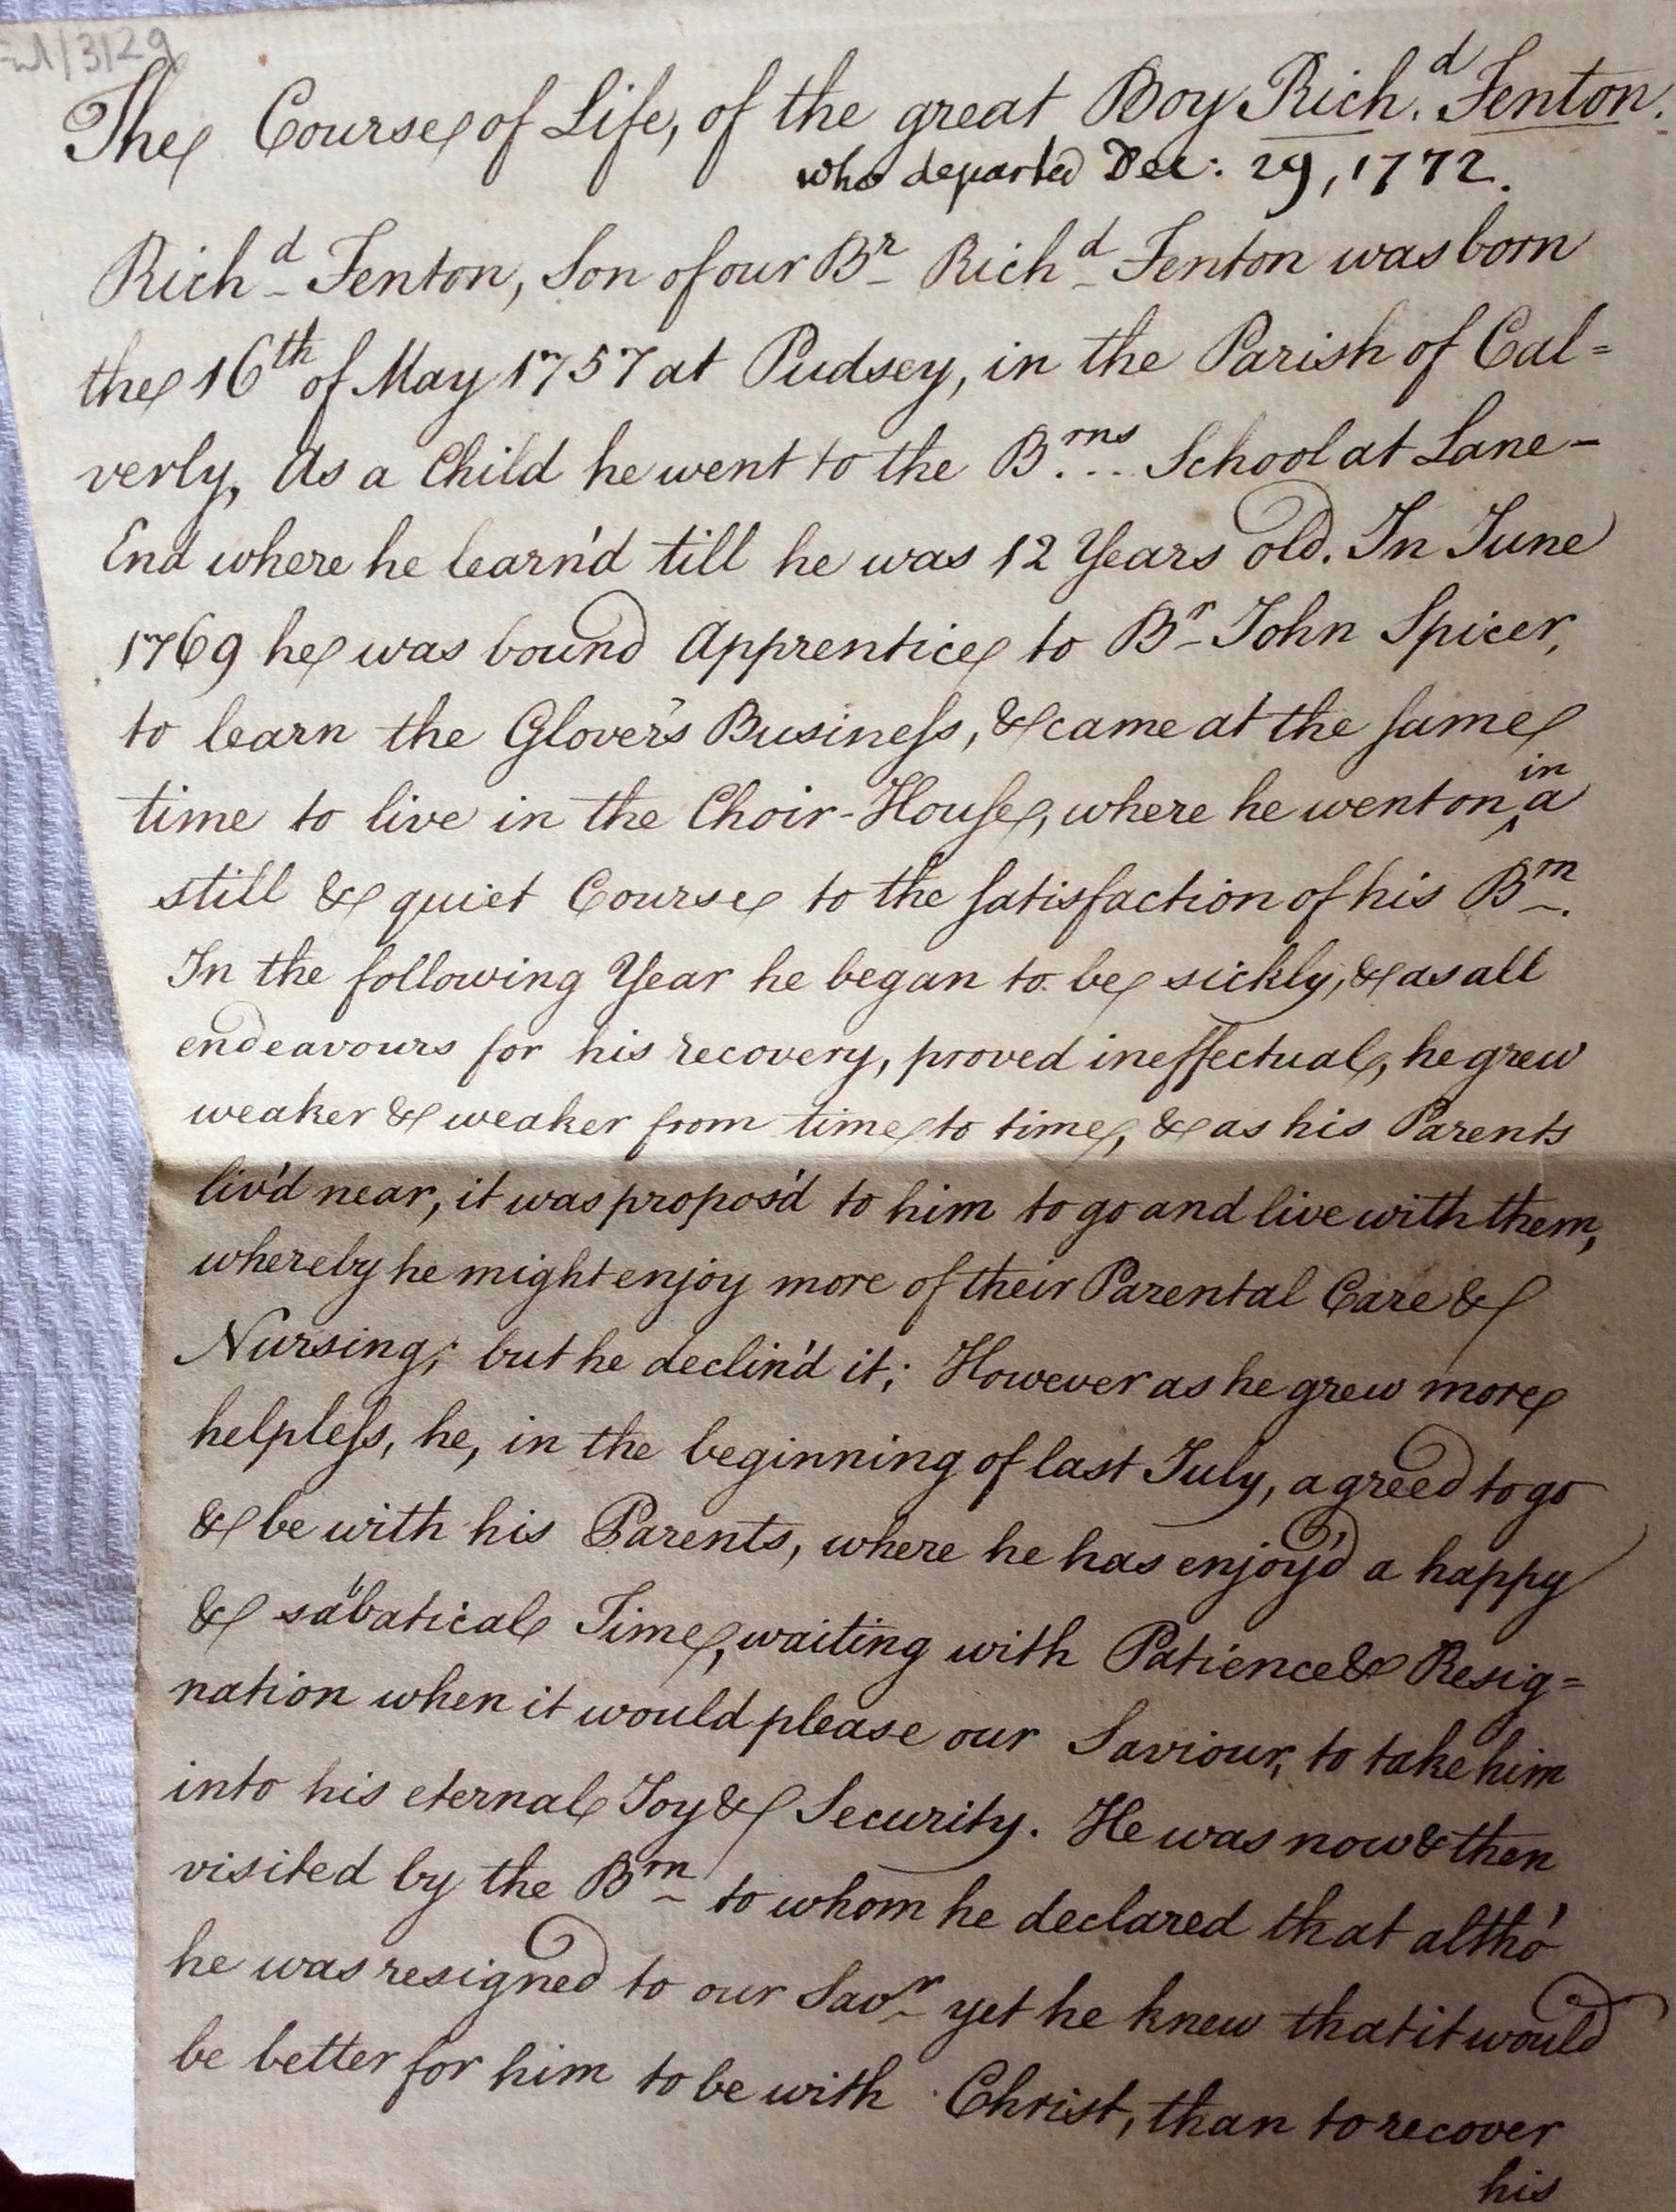 /3/29
The Course of Life, of the great Boy Rich.d Fenton.
who departed Dec: 29, 1772.
Richd Fenton, Son of our Br Richd Fenton was born
the 16th of May 1757 at Pudsey, in the Parish of Cal=
verly, As a Child he went to the B.rns School at Lane-
End where he learn'd till he was 12 Years old. In June
1769 he was bound Apprentice to Br John Spicer,
to learn the Glover's Busineſs, & came at the ſame
time to live in the Choir-Houſe, where he went on in a
still & quiet Course to the ſatisfaction of his Brn.
In the following Year he began to be sickly, & as all
endeavours for his recovery, proved ineffectual, he grew
weaker & weaker from time to time, & as his Parents
liv'd near, it was propos'd to him to go and live with them,
whereby he might enjoy more of their Parental Care &
Nursing; but he declin'd it; However as he grew more
helpleſs, he, in the beginning of last July, agreed to go
& be with his Parents, where he has enjoy'd a happy
& sabbatical Time, waiting with Patience & Resig=
nation when it would please our Saviour, to take him
into his eternal Joy & Security. He was now & then
visited by the Brn to whom he declared that altho'
he was resigned to our Savr yet he knew that it would
be better for him to be with Christ, than to recover
his